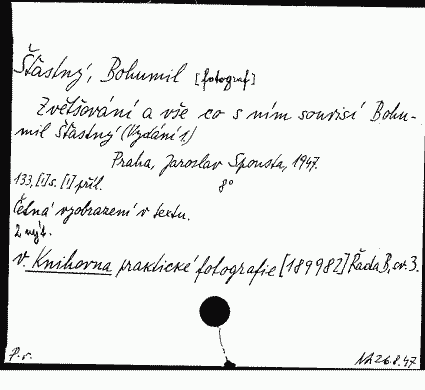 Šťastný, Bohumil [fotograf]
Zvětšování a vše co s ním souvisí Bohu-
mil Šťastný (Vydání 1.)
Praha, Jaroslav Spousta, 1947.
133, [1] s. [1] příl. 8°
Četná vyobrazení v textu.
2 výt.
v. Knihovna praktické fotografie [189982] Řada B, sv. 3.
P. r. NA 26.8.47